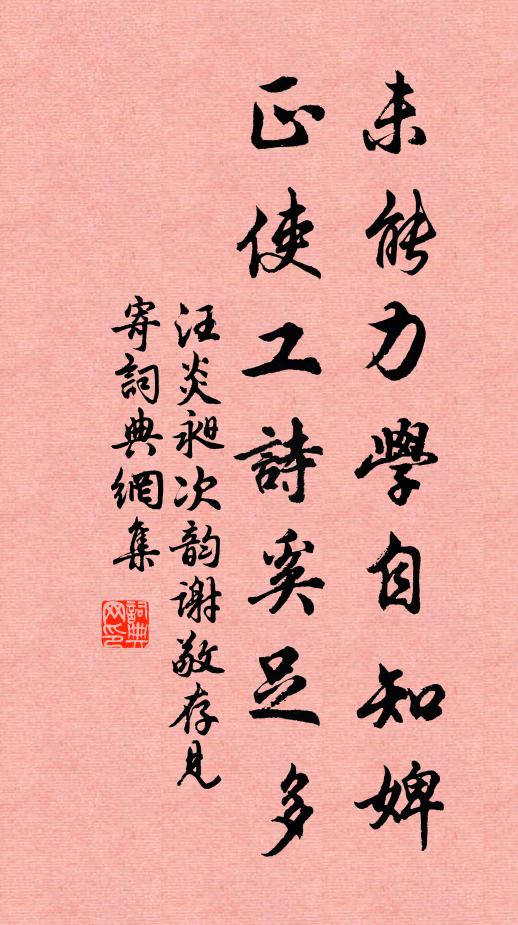 未能力學自知婢
正使工詩奚足多
汪炎昶次韵谢敬存見
寄詞典網集
詞典网印